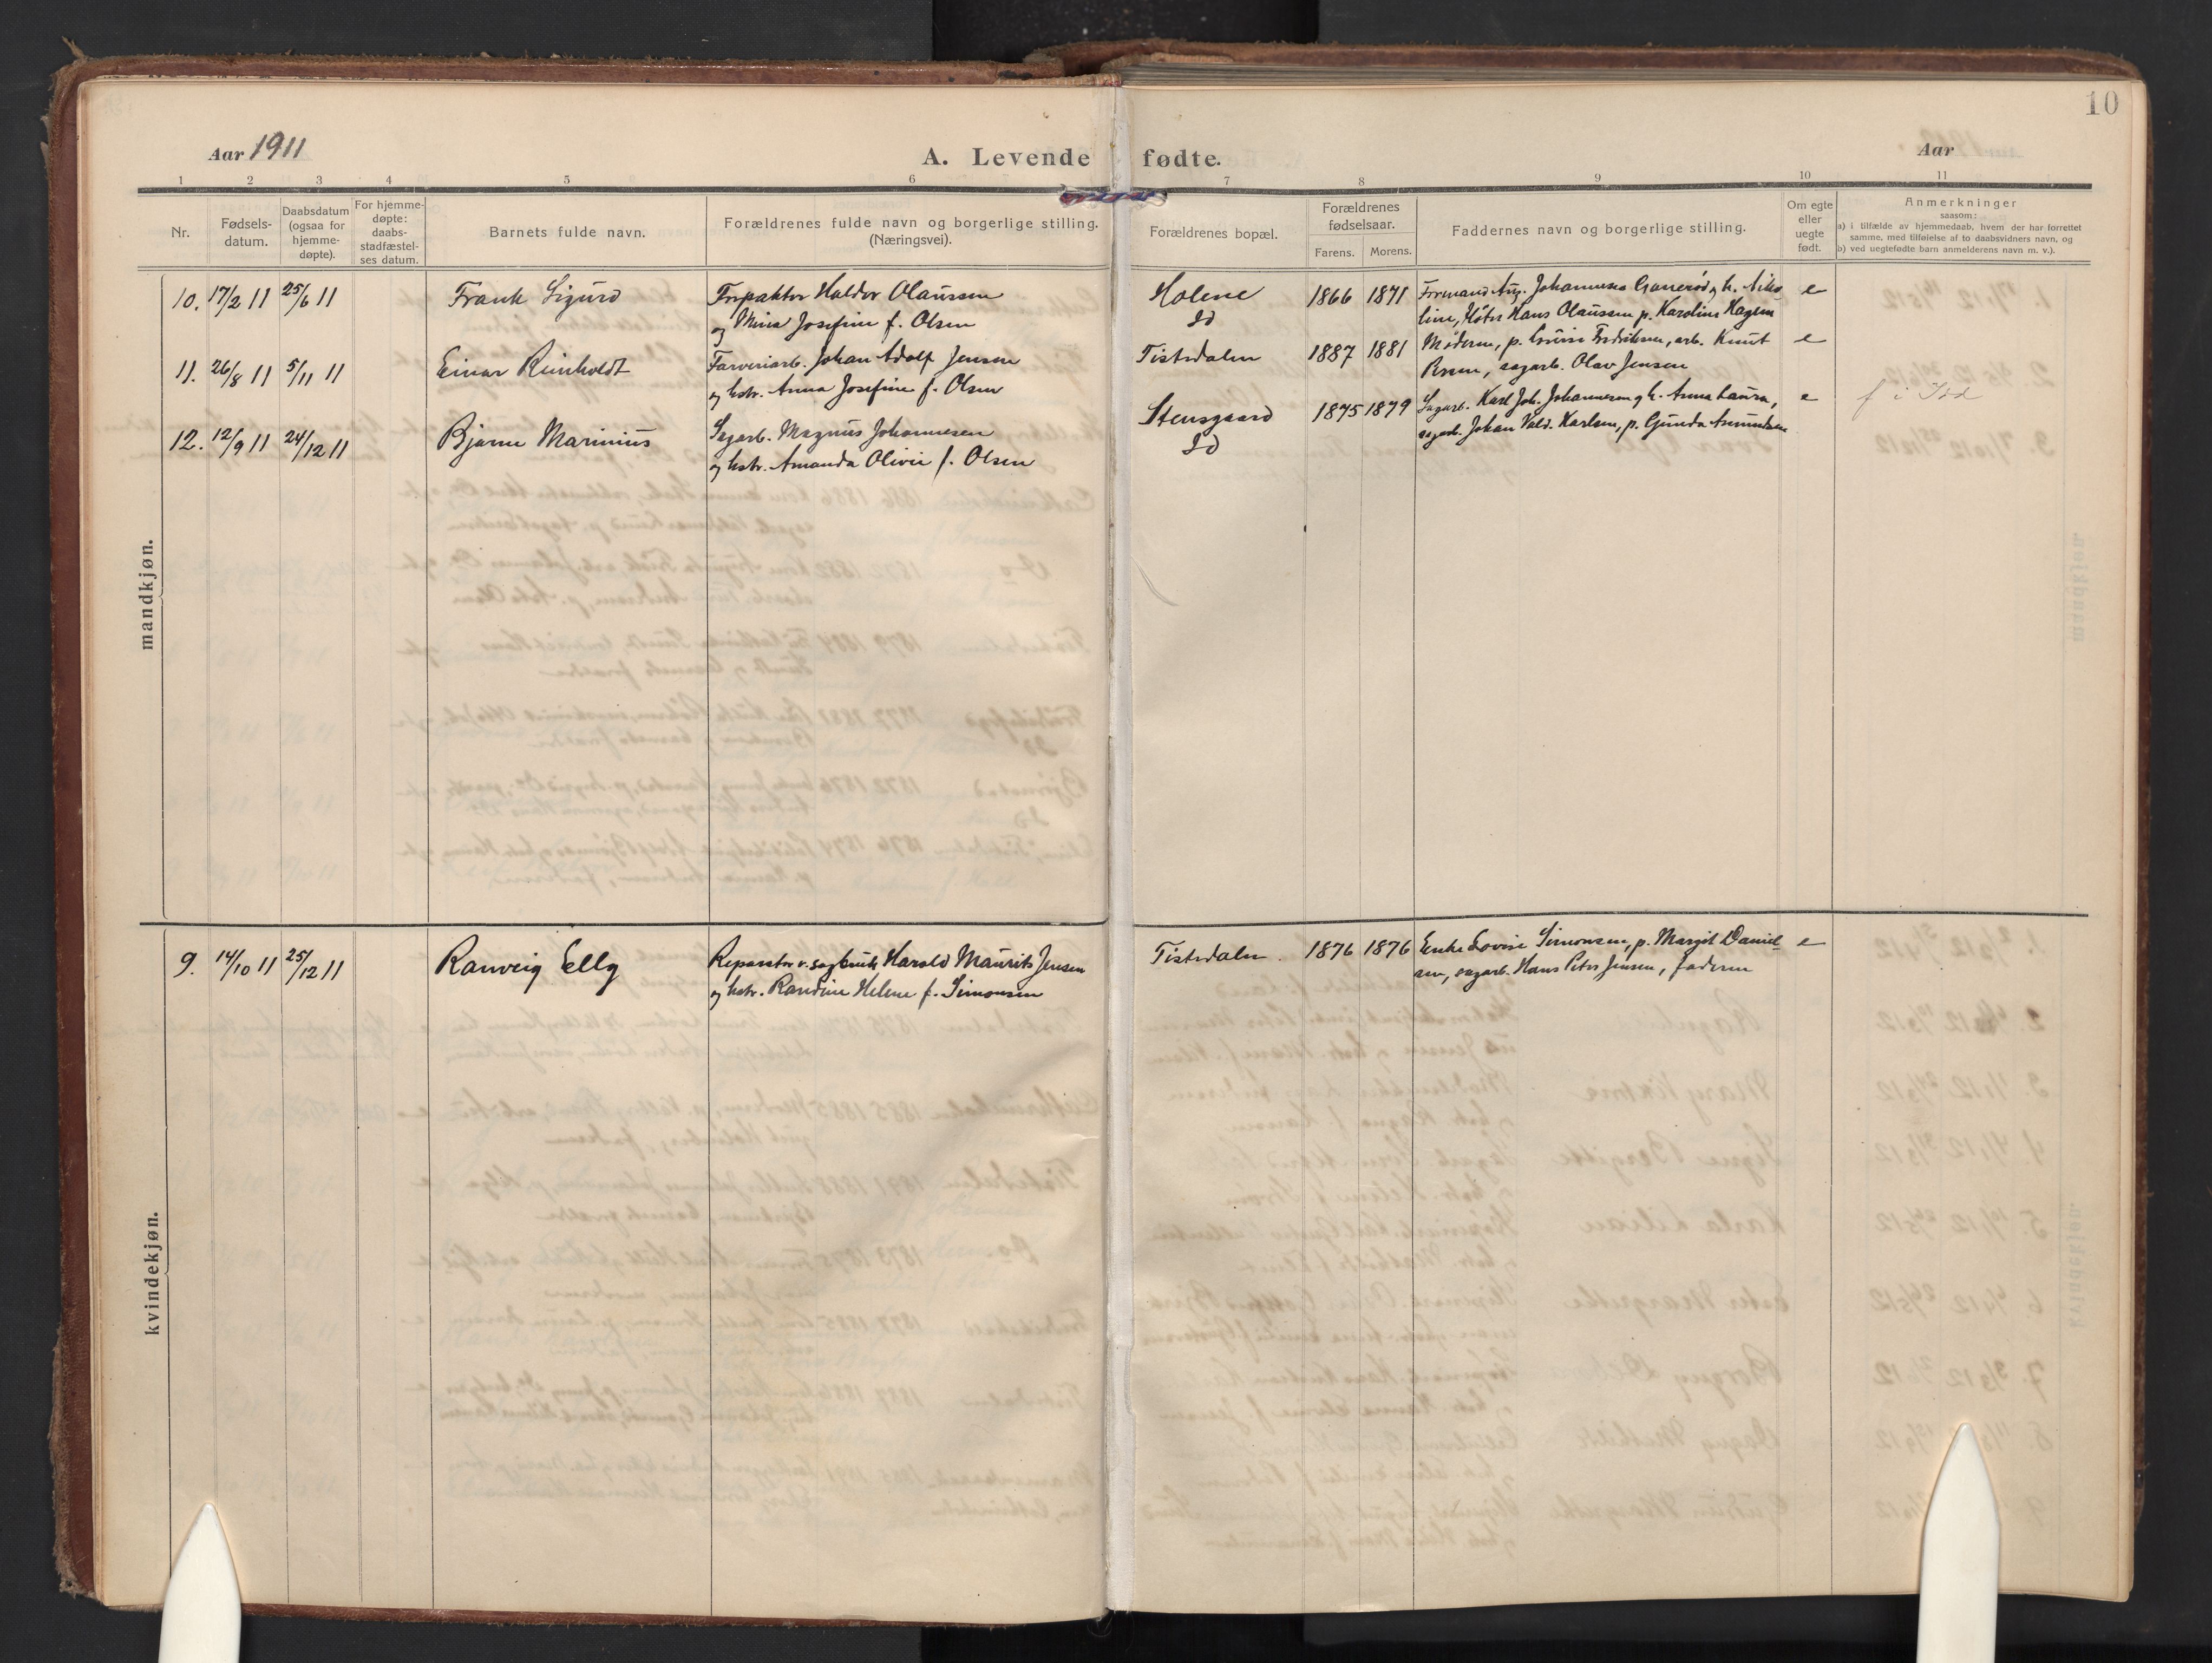 10
Aar 1911
A. Levende fødte.
Aar
1 2 3 4 5 6 7 8 9 10 11
Nr.
Fødsels-
datum.
Daabsdatum
(ogsaa for
hjemme-
døpte).
For hjemme-
døpte:
daabs-
stadfæstel-
ses datum.
Barnets fulde navn.
Forældrenes fulde navn og borgerlige stilling.
(Næringsvei).
Forældrenes bopæl.
Forældrenes
fødselsaar.
Farens. Morens.
Faddernes navn og borgerlige stilling.
Om egte
eller
uegte
født.
Anmerkninger
saasom:
a) i tilfælde av hjemmedaab, hvem der har forrettet
samme, med tilføielse af to daabsvidners navn, og
b) ved uegtefødte barn anmelderens navn m. v.).
mandkjøn.
10. 17/2 11 25/6 11 Frank Sigurd
Forpakter Haldor Olaussen
og Mina Josefine f. Olsen
Holene
Id
1866 1871
Formand Aug. Johannesen Ganerød og h. Niko
line, Hans Olaussen p. Karoline Hagen
e
11. 26/8 11 5/11 11 Einar Reinholdt
Farveriarb. Johan Adolf Jensen
og hstr. Anna Josefine f. Olsen
Tistedalen
1887 1881
Moderen, p. Lovise Fredriksen, arb. Knut
sagarb. Olav Jensen
e
12. 12/9 11 24/12 11 Bjarne Marinius
Sagarb. Magnus Johannesen
og hstr. Amanda Olivie f. Olsen
Stensgaard
Id
1875 1879
Sagarb. Karl Joh. Johannesen og h. Anna Laura,
sagarb. Johan Vald. Karlsen, p. Gunda Asmundsen
e
f i Idd
kvindekjøn.
9. 14/10 11 25/12 11 Ranveig Elly
Reparatør v. sagbruk Harald Maurits Jensen
og hstr. Randine Helene f. Simonsen
Tistedalen.
1876 1876
Enke Lovise Simonsen, p. Margit Daniel
sen, sagarb. Hans Peter Jensen, faderen
e